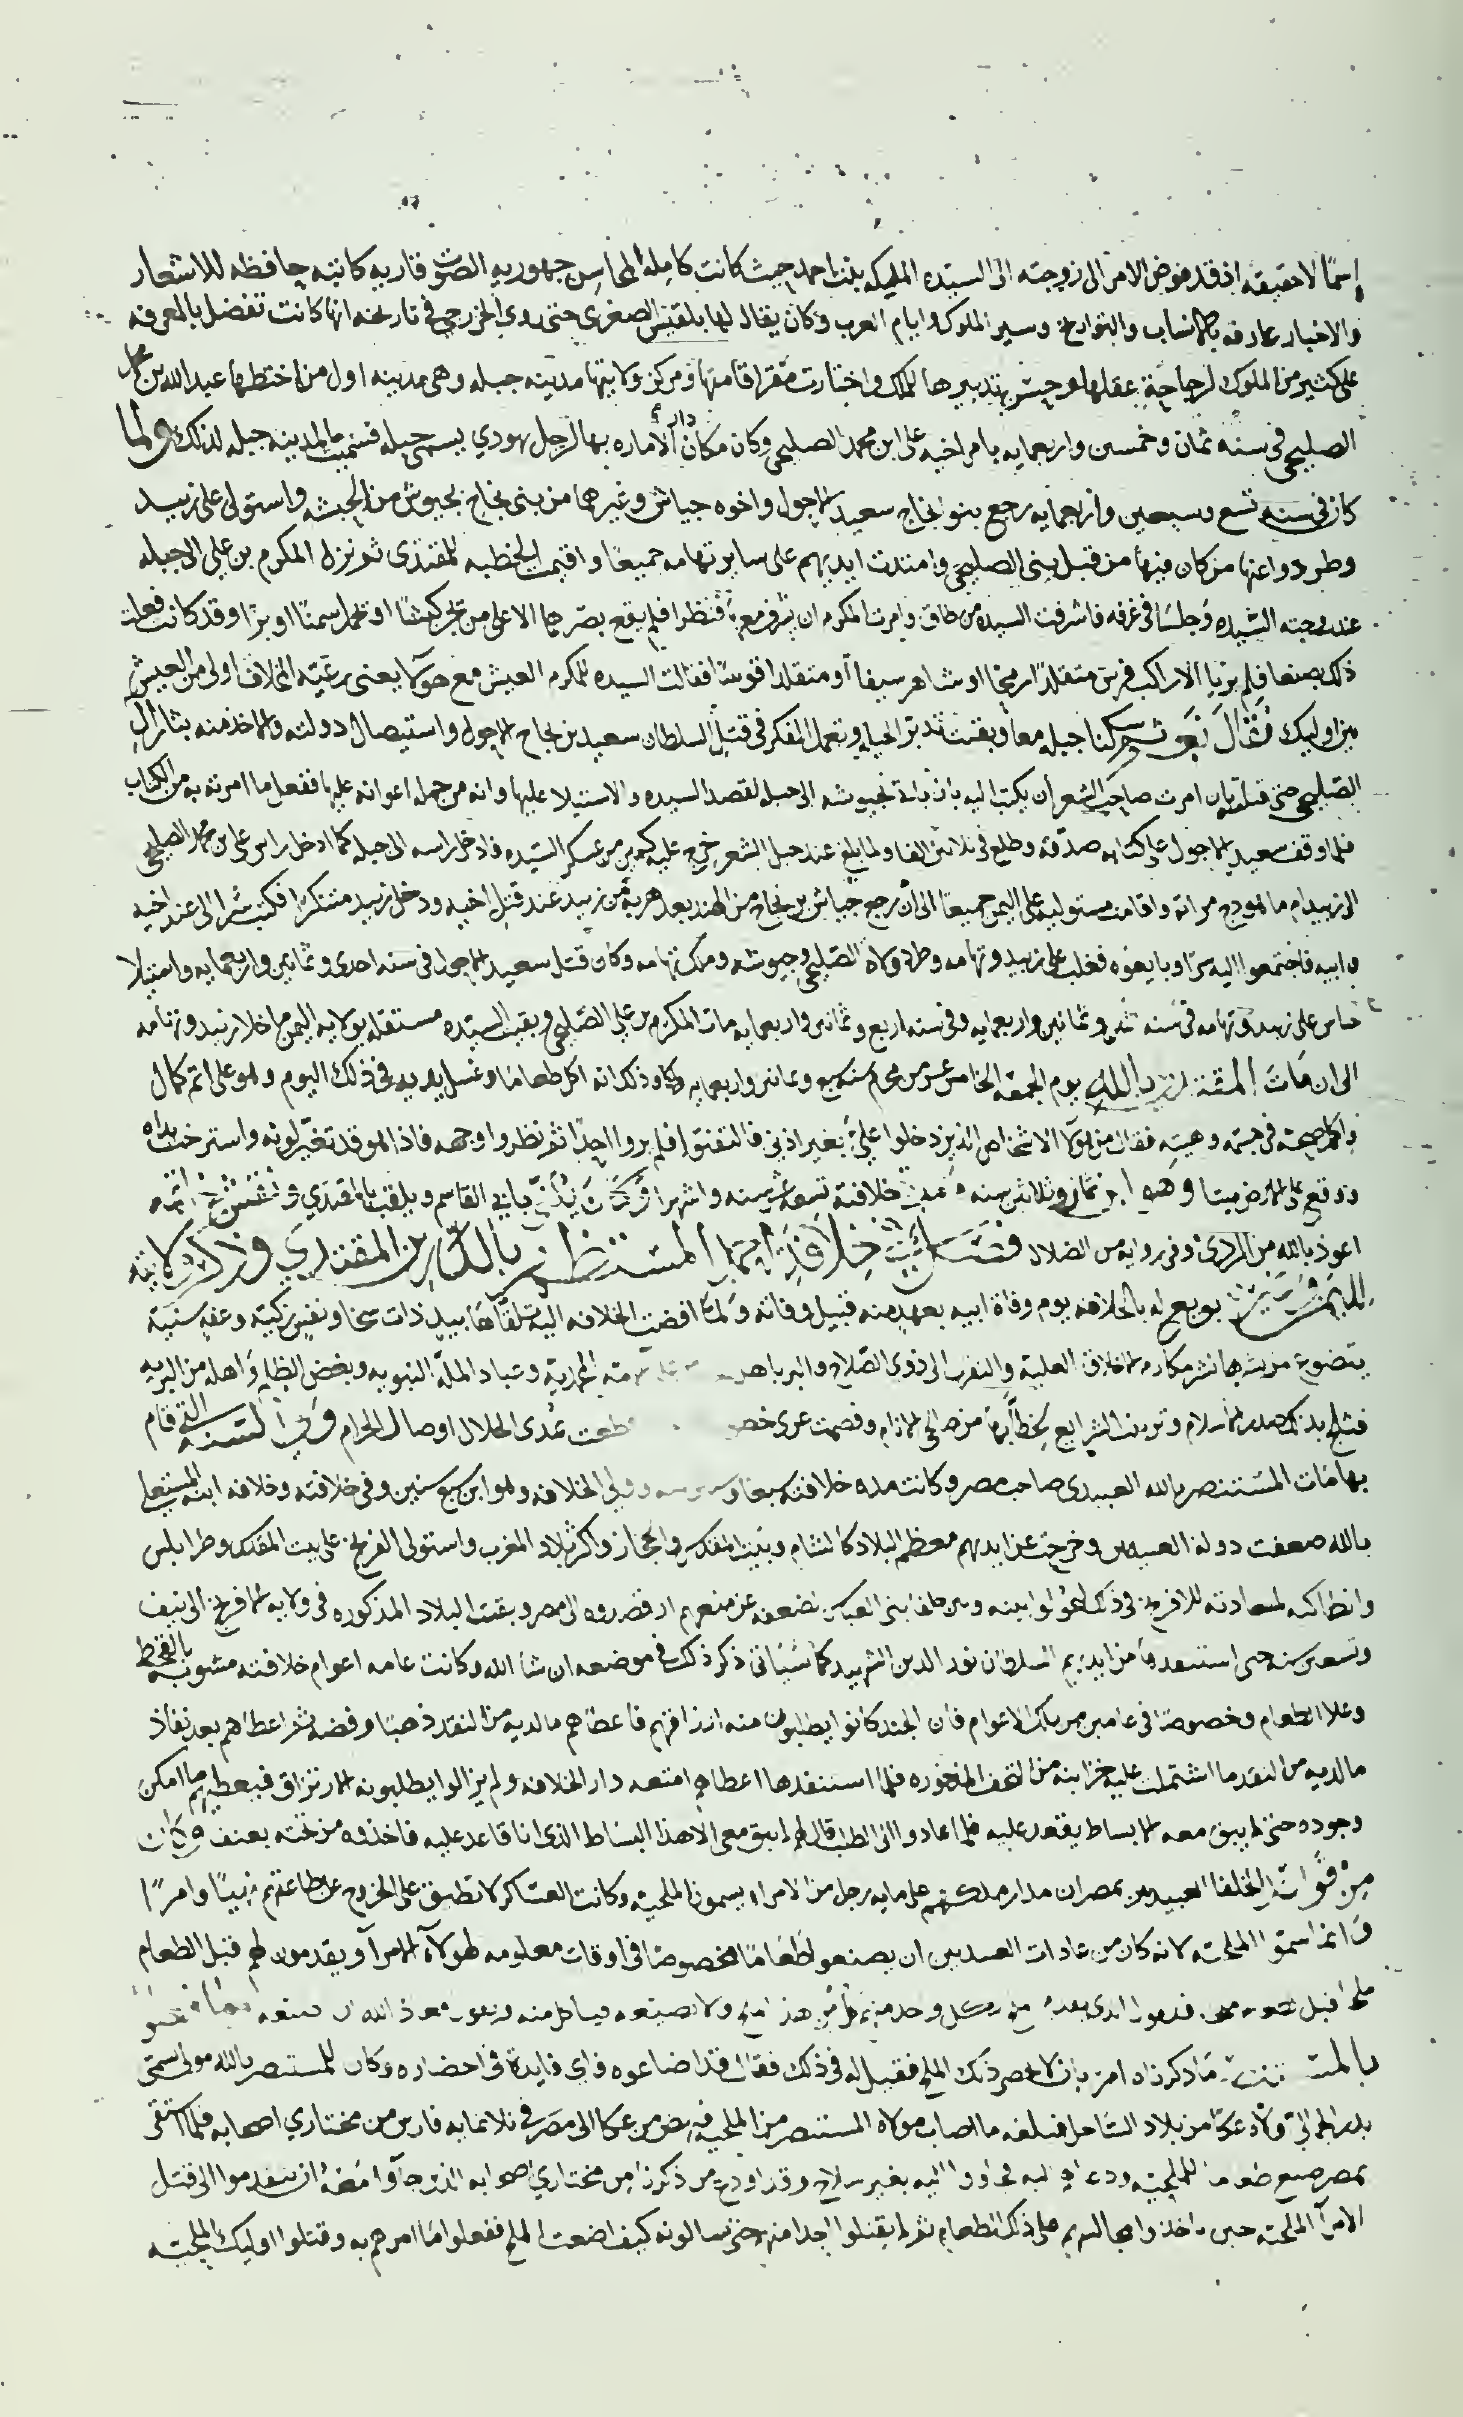 إسما لا حقيقة اذ قد فوض الامر الى زوجته الى السيده المليكه بنت احمد حيث كانت كامله المحاسن جهوريه الصوت قاريه كاتبه حافظه للاشعار
والاخبار عارفه بالانساب والتواريخ وسير الملوك وايام العرب وكان يقال لها بلقيس الصغرى حتى روى الخزرجي في تاريخه انها كانت تفضل بالمعرفه
على كثير من الملوك لرجاحة عقلها وحسن تدبيرها للملك واختارت مدينه جبله وهى مدينه اول من اختطها عبد الله بن محمد
الصليحي في سنة ثمان وخمسين واربعمايه بامر اخيه على ابن محمد الصليحي وكان مكان دار الاماره بها لرجل يهودي يسمى جبله فسميت المدينه جبله لذلك ولما
كان في سنه تسع وسبعين واربعمايه رجع بنو نجاح سعيد الاحول واخوه جياش وغيرهما من بنى نجاح بجيوش من الحبشه واستولى على زبيد
وطردوا عنها من كان فيها من قبل بنى الصليحي وامتدت ايديهم على ساير تهامه جميعا واقيمت الخطبه للمقتدى ثم نزل المكرم بن علي الى جبله
عند زوجته السيده وجلسا في غرفه فاشرفت السيده من طاق وامرت المكرم ان يشرف معها فنظرا فلم يقع بصرهما الا على من يجر كبشا او يحمل سمنا او برا وقد كانت فعلت
ذلك بصنعا فلم يريا الا راكب فرس متقلدا رمحا او شاهر سيفا او متقلدا قوسا فقالت السيده للمكرم العيش مع هولا يعنى رعيه المخلاف اولى من العيش
بين اوليك فقال نعم ثم سكنا جبله معا وبقيت تدبر الحيله وتعمل الفكر في قتل السلطان سعيد بن نجاح الاحول واستيصال دولته والاخذ منه بثار آل
الصليحي حتى قتلته بان امرت صاحب الشعر ان يكتب اليه بان ياتي بجيوشه الى جبله لقصد السيده والاستيلا عليها وانه من جملة اعوانه عليها ففعل ما امرته به من الكتاب
فلما وقف سعيد الاحول على كتابه صدقه وطلع في ثلاثين الفا ولما بلغ عند جبل الشعر خرج عليه كمين من عسكر السيده فادخل راسه الى جبله كما ادخل راس على بن محمد الصليحي
الى زبيد امام هودج مراته واقامت مستوليه على اليمن جميعا الى ان رجع جياش بن نجاح من الهند بعد هربه من زبيد عند قتل اخيه ودخل زبيد متنكرا فكتب سرا الى عبيد اخيه
وابيه فاجتمعوا اليه سرا وبايعوه فغلب على زبيد وتهامه وطرد ولاة الصليحي وجيوشه وملك تهامه وكان قتل سعيد الاحول في سنه احدى وثمانين واربعمايه واستيلا
جياش على زبيد وتهامه في سنه وثمانين واربعمايه وفى سنه اربع وثمانين واربعمايه مات المكرم بن على الصليحي وبقيت السيده مستقله بولايه اليمن ما خلا زبيد وتهامه
الى ان مات المقتدى بالله يوم الجمعه الخامس عشر من محرم سنه سبع وثمانين واربعمايه وذلك انه اكل طعاما وغسل يديه في ذلك اليوم وهو على اتم كمال
واكمل صحه في جسمه وهيبته فقال من هولا الاشخاص الذين دخلوا علي بغير اذني فالتفتوا فلم يروا احدا ثم نظروا وجهه فاذا هو قد تغير لونه واسترخت يداه
ووقع على الارض ميتا وهو ابن ثمان وثلاثين سنه خلافته تسعه عشر سنه واشهرا وكان يكنى بابي القاسم ويلقب بالمقتدي ونقش خاتمه
اعوذ بالله من الردى وفى روايه من الضلال فتمت خلافة احمد المستظهر بالله بن المقتدي وذكر كاينة
اليمن وغيره بويع له بالخلافه يوم وفاة ابيه بعهد منه قبيل وفاته ولما افضت الخلافه اليه تلقاها بيد ذات سخا ونفس زكية وعفه سنية
يتضوع من نشرها نشر مكارم الاخلاق العليه والتقرب الى ذوى الصلاح والبر باهل المحمدية وعباد الملة النبويه وبغض الظلم واهله من البريه
فثلج بذلك صدر الاسلام وتزينت الشرايع وفصمت عرى قطعت مدى الحلال اوصال الحرام وفى السنه التي قام
بها مات المستنصر بالله العبيدى صاحب مصر وكانت مده خلافته سبعا وولي الخلافه وهو ابن سبع سنين وفى خلافته وخلافه ابنه المستعلي
بالله ضعفت دولة العبيديين وخرجت عن ايديهم معظم البلاد كالشام وبيت المقدس والحجاز واكثر بلاد المغرب واستولى الفرنج على بيت المقدس وطرابلس
وانطاكيه بضعفه عن منعهم ان قصدوه الى مصر وبقيت البلاد المذكوره في ولايه الافرنج الى نيف
وتسعين سنه حتى استنقدها من ايديهم السلطان نور الدين الشهيد كما سياتى ذكر ذلك في موضعه ان شا الله وكانت عامه اعوام خلافته مشوبه بالقحط
وغلا الطعام وخصوصا في عامين من تلك الاعوام فان الجند كانوا يطلبون منه ارزاقهم فاعطاهم مالديه من النقد ذهبا وفضه ثم اعطاهم بعد نفاذ
مالديه من النقد ما اشتملت عليه خزاينه من التحف المدخوره فلما استنفدها اعطاهم امتعه دار الخلافه ولم يزالوا يطلبونه الارتزاق فيعطيهم ما امكن
وجوده حتى لم يبق معه الا بساط يقعد عليه فلما عادوا الى الطلب قال لهم لم يبق معى الا هذا البساط الذى انا قاعد عليه فاخذوه من تحته بعنف وكان
من الخلفا العبيديين بمصر ان مدار ملكهم على مايه رجل من الامراء يسمون الملحية وكانت العساكر لا تطيق على الخروج عن طاعتهم نهيا وامرا
وانما سموا الملحيه لانه كان من عادات العبيديين ان يصنعوا لهم طعاما مخصوصا في اوقات معلومه لهولاء الامرآ ويقدمون لهم قبل الطعام
ملحا
ما ذكرناه امر بان لا يحضر ذلك الملح فقيل له في ذلك فقال قد اضاعوه فاى فايدة فى احضاره وكان للمستنصر بالله مولى يسمى
بدر الجمالي ولاه عكا من بلاد الساحل فبلغه ما اصاب مولاه المستنصر من الملحيه فنهض من عكا الى مصر في ثلاثمايه فارس من مختاري اصحابه فلما استقر
بمصر صنع طعاما للملحية ودعاهم اليه فجاووا اليه بغير سلاح وقد اودع من ذكرنا من مختاري اصحابه وامرهم ان يتقدموا الى قتل
الامرآ الملحيه حين ياخذوا مجالسهم على ذلك الطعام ثم لم يقتلوا احدا منهم حتى يسالونه كيف اضعت الملح ففعلوا ما امرهم به وقتلوا اوليك الملحيه